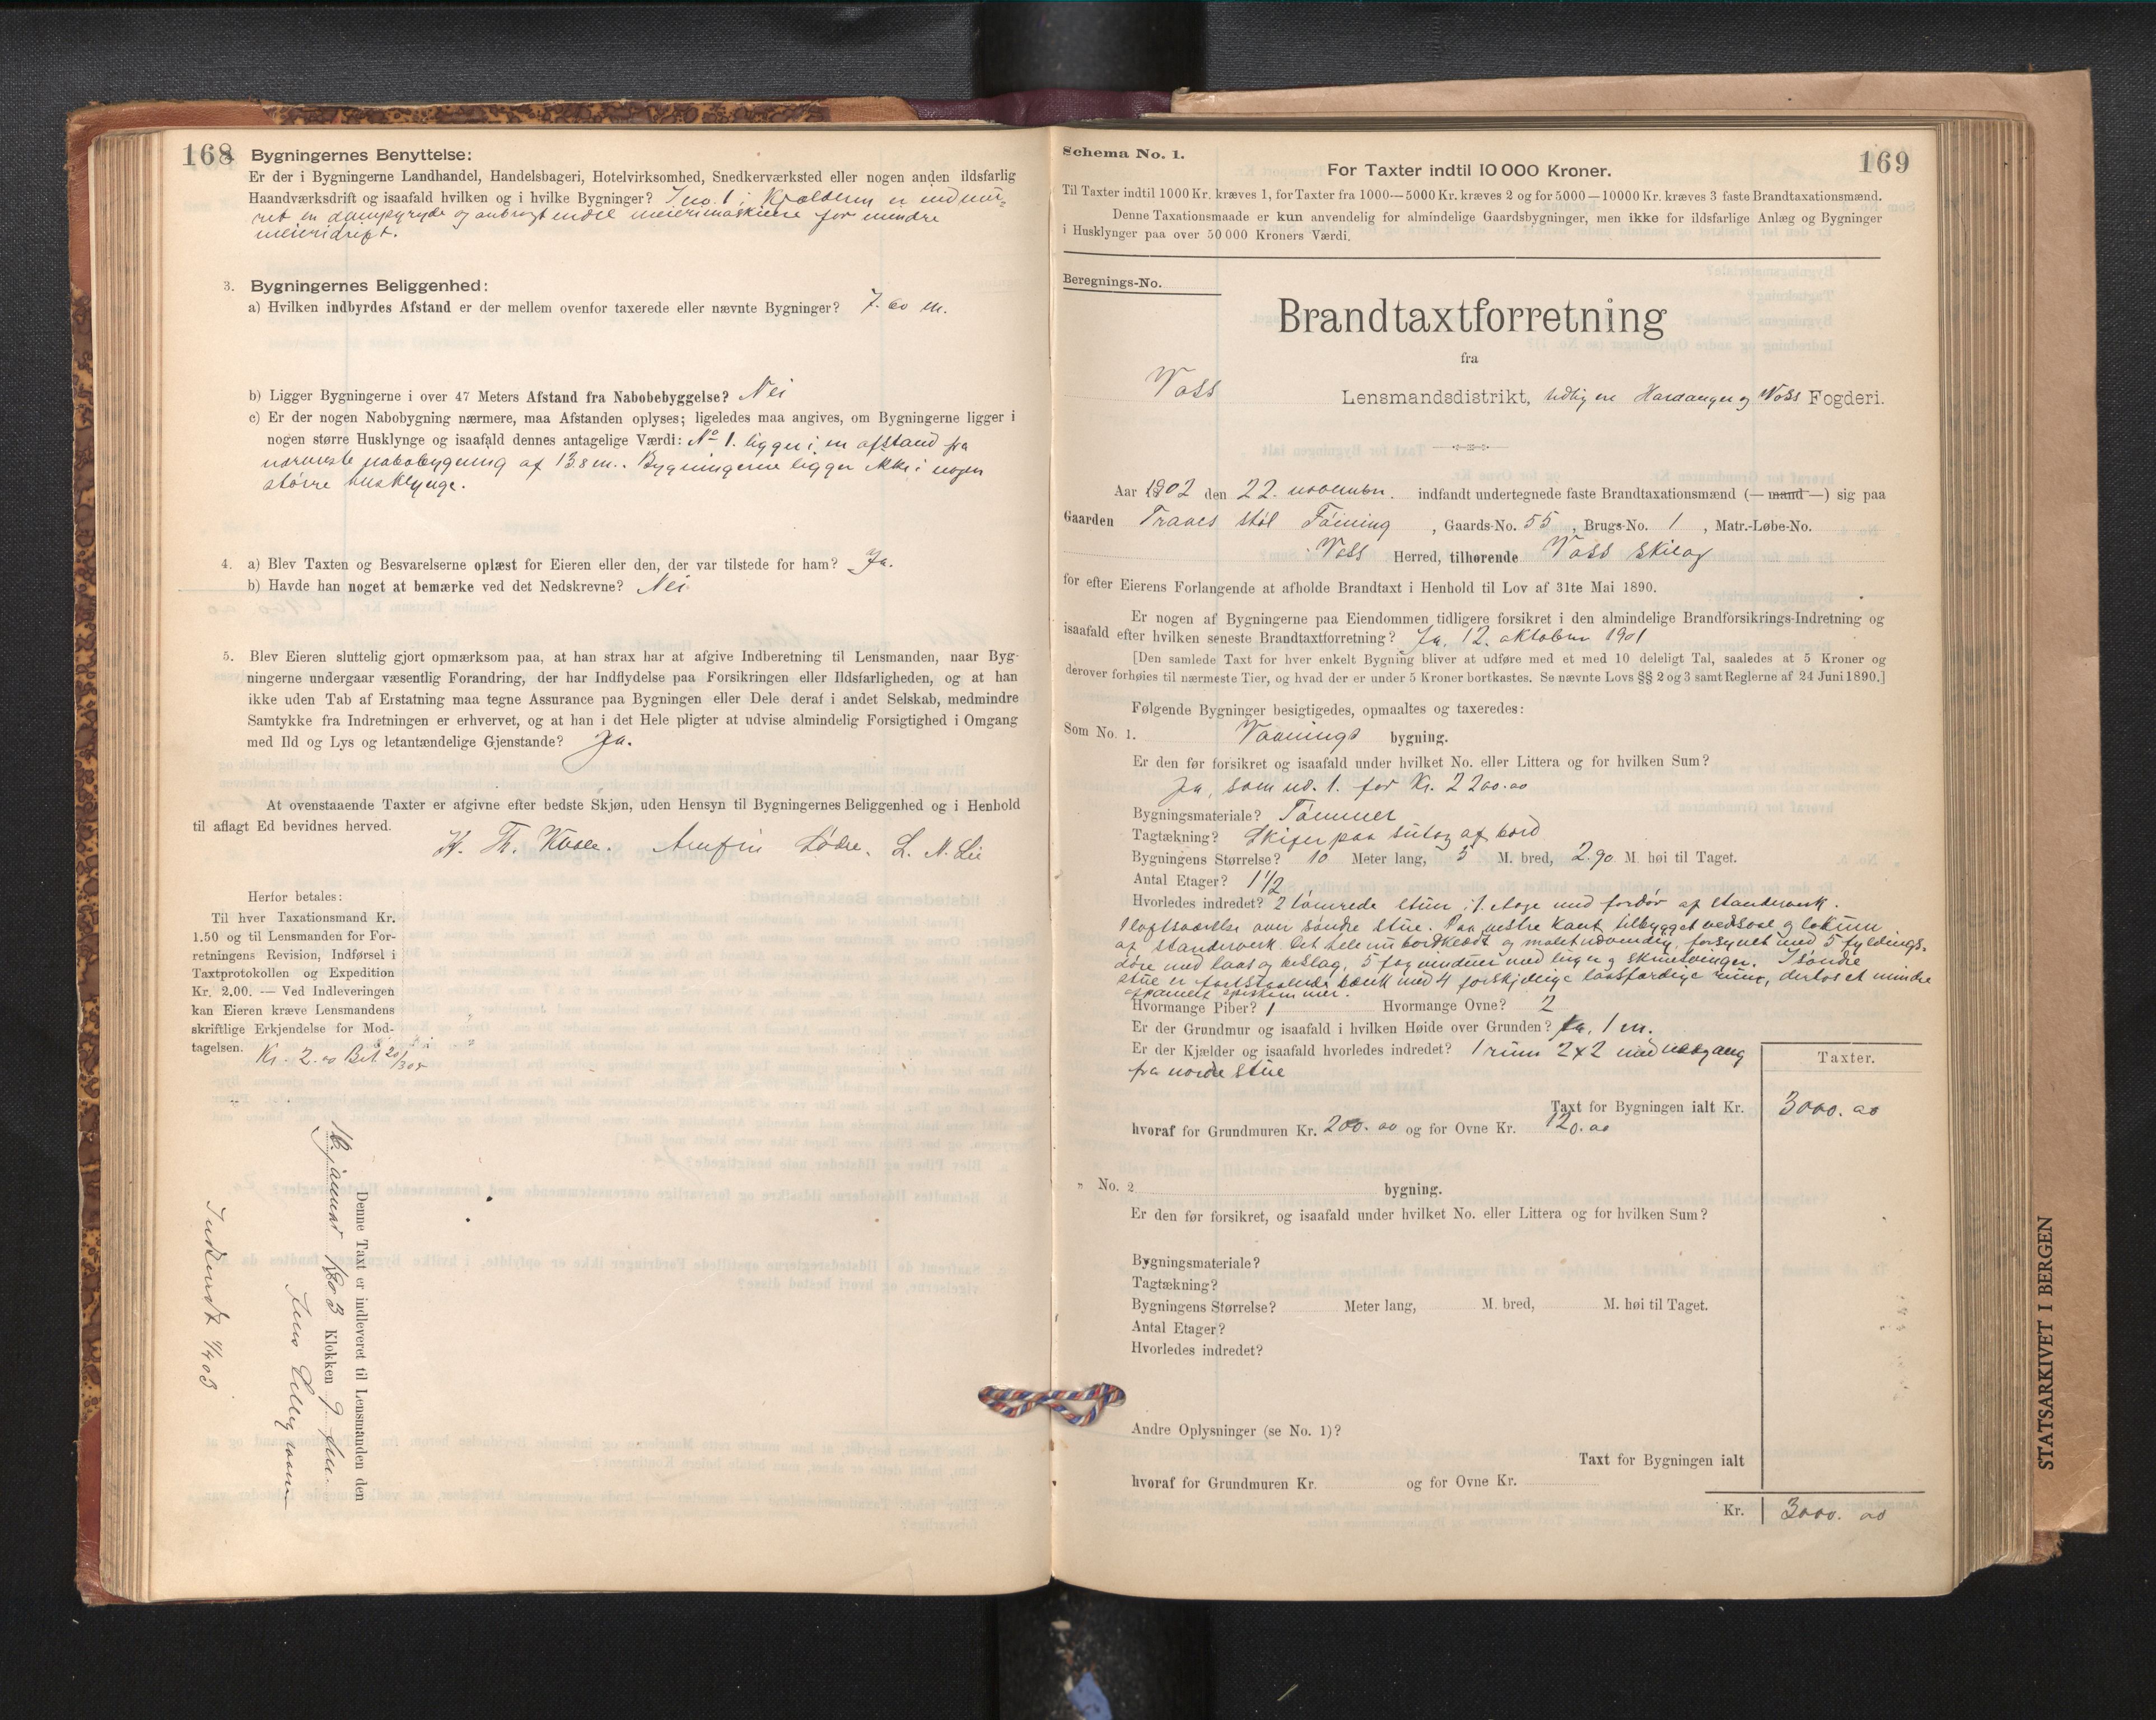 168
Bygningernes Benyttelse:
Er der i Bygningerne Landhandel, Handelsbageri, Hotelvirksomhed, Snedkerværksted eller nogen anden ildsfarlig
Haandværksdrift og isaafald hvilken og i hvilke Bygninger? I no. 1 i Kjælderen er indmu-
ret en dampgryde og anbragt endel meierimaskiner for mindre
meieridrift.
3. Bygningernes Beliggenhed:
a) Hvilken indbyrdes Afstand er der mellem ovenfor taxerede eller nævnte Bygninger? 7.60 m.
b) Ligger Bygningerne i over 47 Meters Afstand fra Nabobebyggelse? Nei
c) Er der nogen Nabobygning nærmere, maa Afstanden oplyses; ligeledes maa angives, om Bygningerne ligger i
nogen større Husklynge og isaafald dennes antagelige Værdi: No 1. ligger i en afstand fra
nærmeste nabobygning af 13.8 m. Bygningerne ligger ikke i nogen
større husklynge.
4. a) Blev Taxten og Besvarelserne oplæst for Eieren eller den, der var tilstede for ham? Ja.
b) Havde han noget at bemærke ved det Nedskrevne? Nei.
5. Blev Eieren sluttelig gjort opmærksom paa, at han strax har at afgive Indberetning til Lensmanden, naar Byg-
ningerne undergaar væsentlig Forandring, der har Indflydelse paa Forsikringen eller Ildsfarligheden, og at han
ikke uden Tab af Erstatning maa tegne Assurance paa Bygningen eller Dele deraf i andet Selskab, medmindre
Samtykke fra Indretningen er erhvervet, og at han i det Hele pligter at udvise almindelig Forsigtighed i Omgang
med Ild og Lys og letantændelige Gjenstande? Ja.
At ovenstaaende Taxter er afgivne efter bedste Skjøn, uden Hensyn til Bygningernes Beliggenhed og i Henhold
til aflagt Ed bevidnes herved.
K. Th. Arnfin L. N. Lie
Herfor betales:
Til hver Taxationsmand Kr.
1.50 og til Lensmanden for For-
retningens Revision, Indførsel i
Taxtprotokollen og Expedition
Kr. 2.00. — Ved Indleveringen
kan Eieren kræve Lensmandens
skriftlige Erkjendelse for Mod-
tagelsen. Kr. 2.00 Bet.
Denne Taxt er indleveret til Lensmanden den
16 januar 1903 Klokken 9 fm.
Jens
Indsendt
Schema No. 1.
For Taxter indtil 10 000 Kroner.
169
Til Taxter indtil 1000 Kr. kræves 1, for Taxter fra 1000—5000 Kr. kræves 2 og for 5000—10000 Kr. kræves 3 faste Brandtaxationsmænd.
Denne Taxationsmaade er kun anvendelig for almindelige Gaardsbygninger, men ikke for ildsfarlige Anlæg og Bygninger
i Husklynger paa over 50 000 Kroners Værdi.
Beregnings-No.
Brandtaxtforretning
fra
Voss Lensmandsdistrikt, Hardanger og Voss Fogderi.
Aar 1902 den 22. november. indfandt undertegnede faste Brandtaxationsmænd (—mand—) sig paa
Gaarden støl , Gaards-No. 55 , Brugs-No. 1 , Matr.-Løbe-No.
Voss Herred, tilhørende Voss Skilag
for efter Eierens Forlangende at afholde Brandtaxt i Henhold til Lov af 31te Mai 1890.
Er nogen af Bygningerne paa Eiendommen tidligere forsikret i den almindelige Brandforsikrings-Indretning og
isaafald efter hvilken seneste Brandtaxtforretning? Ja, 12. oktober 1901
[Den samlede Taxt for hver enkelt Bygning bliver at udføre med et med 10 deleligt Tal, saaledes at 5 Kroner og
derover forhøies til nærmeste Tier, og hvad der er under 5 Kroner bortkastes. Se nævnte Lovs §§ 2 og 3 samt Reglerne af 24 Juni 1890.]
Følgende Bygninger besigtigedes, opmaaltes og taxeredes:
Som No. 1. Vaanings bygning.
Er den før forsikret og isaafald under hvilket No. eller Littera og for hvilken Sum?
Ja, som no. 1. for Kr. 2200.00
Bygningsmateriale? Tømmer
Tagtækning? Skifer paa sutag af bord
Bygningens Størrelse? 10 Meter lang, 5 M. bred, 2.90 M. høi til Taget.
Antal Etager? 1 1/2
Hvorledes indredet? 2 tømrede stuer i 1. etage med fordør af standerverk.
1 loftsværelse over søndre stue. Paa vestre kant tilbygget vedskot og lokum
af standerverk. Det hele nu bordklædt og malet udvendig, forsynet med 5 fyldings-
døre med laas og beslag, 5 fag vinduer med luger og skruesvinger. I søndre
stue er fastst​aaende bænk med 4 forskjellige laasfærdige rum, dertos et mindre
spiskammer.
Hvormange Piber? 1 Hvormange Ovne? 2
Er der Grundmur og isaafald i hvilken Høide over Grunden? Ja, 1 m.
Er der Kjælder og isaafald hvorledes indredet? 1 rum 2x2 med nedgang
fra nordre stue
Taxter.
Taxt for Bygningen ialt Kr. 3000.00
hvoraf for Grundmuren Kr. 200.00 og for Ovne Kr. 120.00
" No. 2 bygning.
Er den før forsikret, og isaafald under hvilket No. eller Littera og for hvilken Sum?
Bygningsmateriale?
Tagtækning?
Bygningens Størrelse? Meter lang, M. bred, M. høi til Taget.
Antal Etager?
Hvorledes indredet?
Andre Oplysninger (se No. 1)?
Taxt for Bygningen ialt
hvoraf for Grundmuren Kr. og for Ovne Kr.
Kr. 3000.00
STATSARKIVET I BERGEN